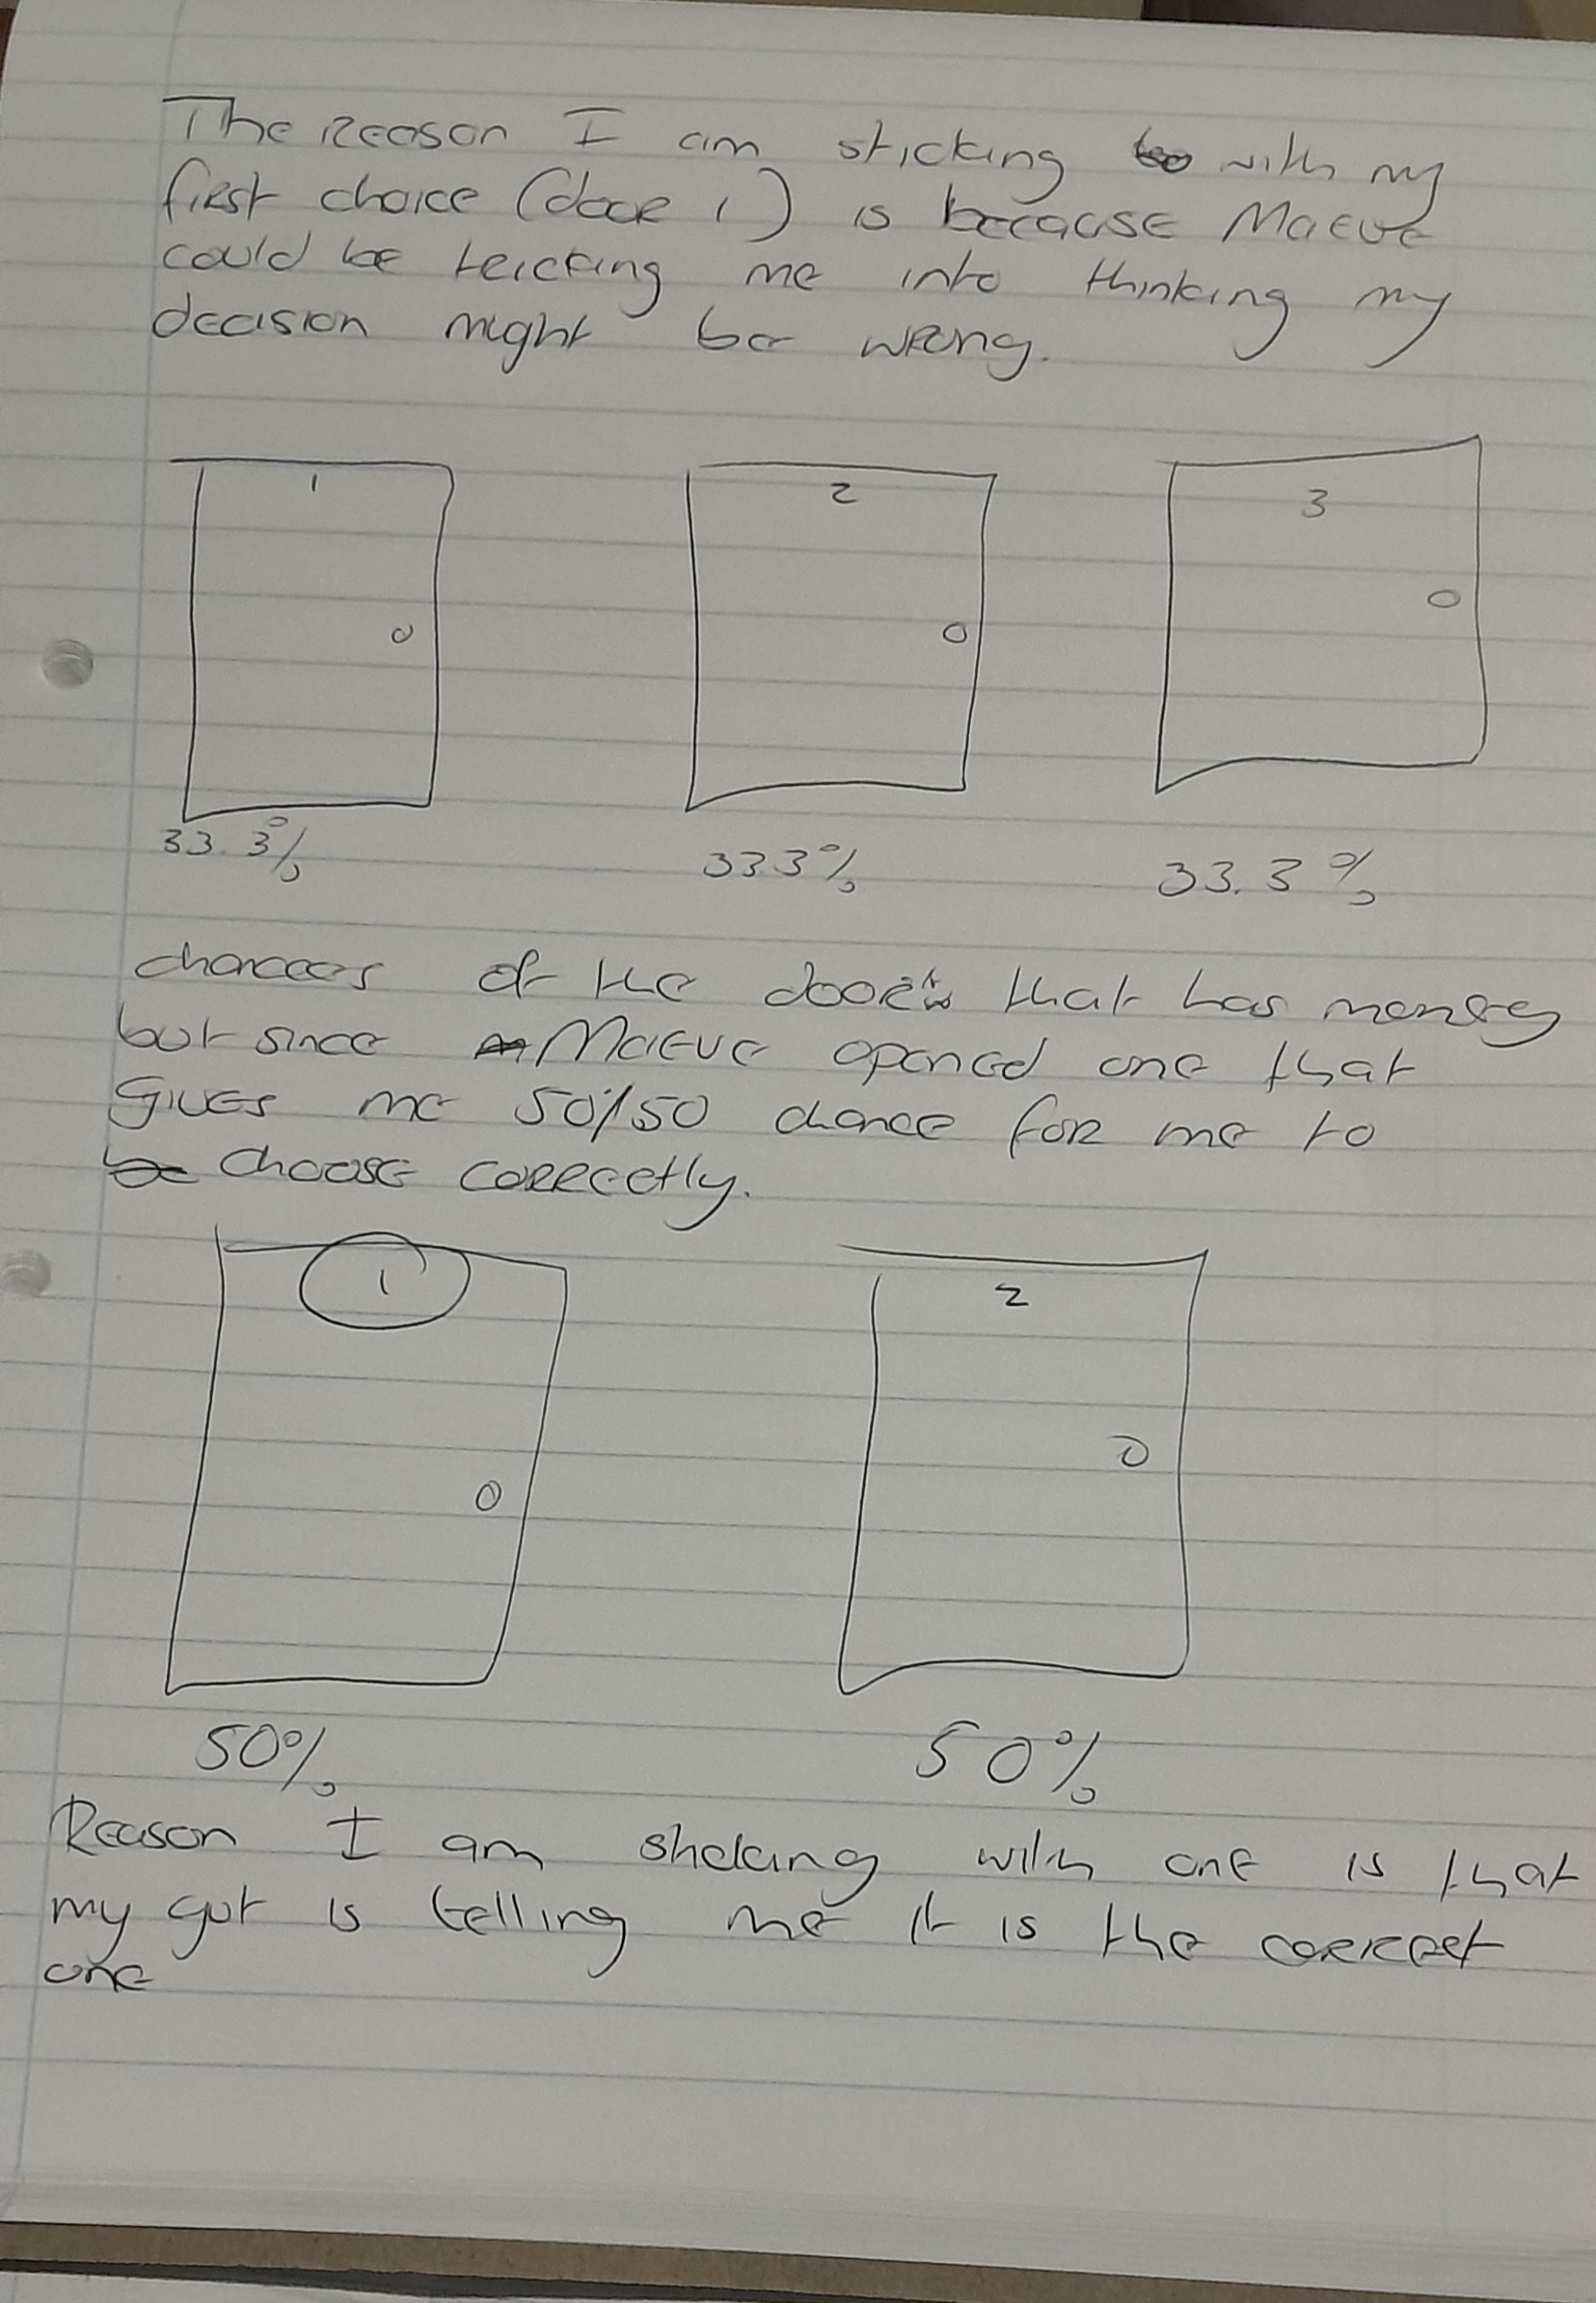 The reason I am sticking with my
first choice (door 1) is because Maeve
could be tricking me into thinking my
decision might be wrong.
1 2 3
33.3% 333% 33.3%
chances of the door that has money
but since Maeve opened one that
gives me 50/50 chance for me to
choose correctly.
1 2
50% 50%
Reason I am sticking with one is that
my gut is telling me it is the correct
one